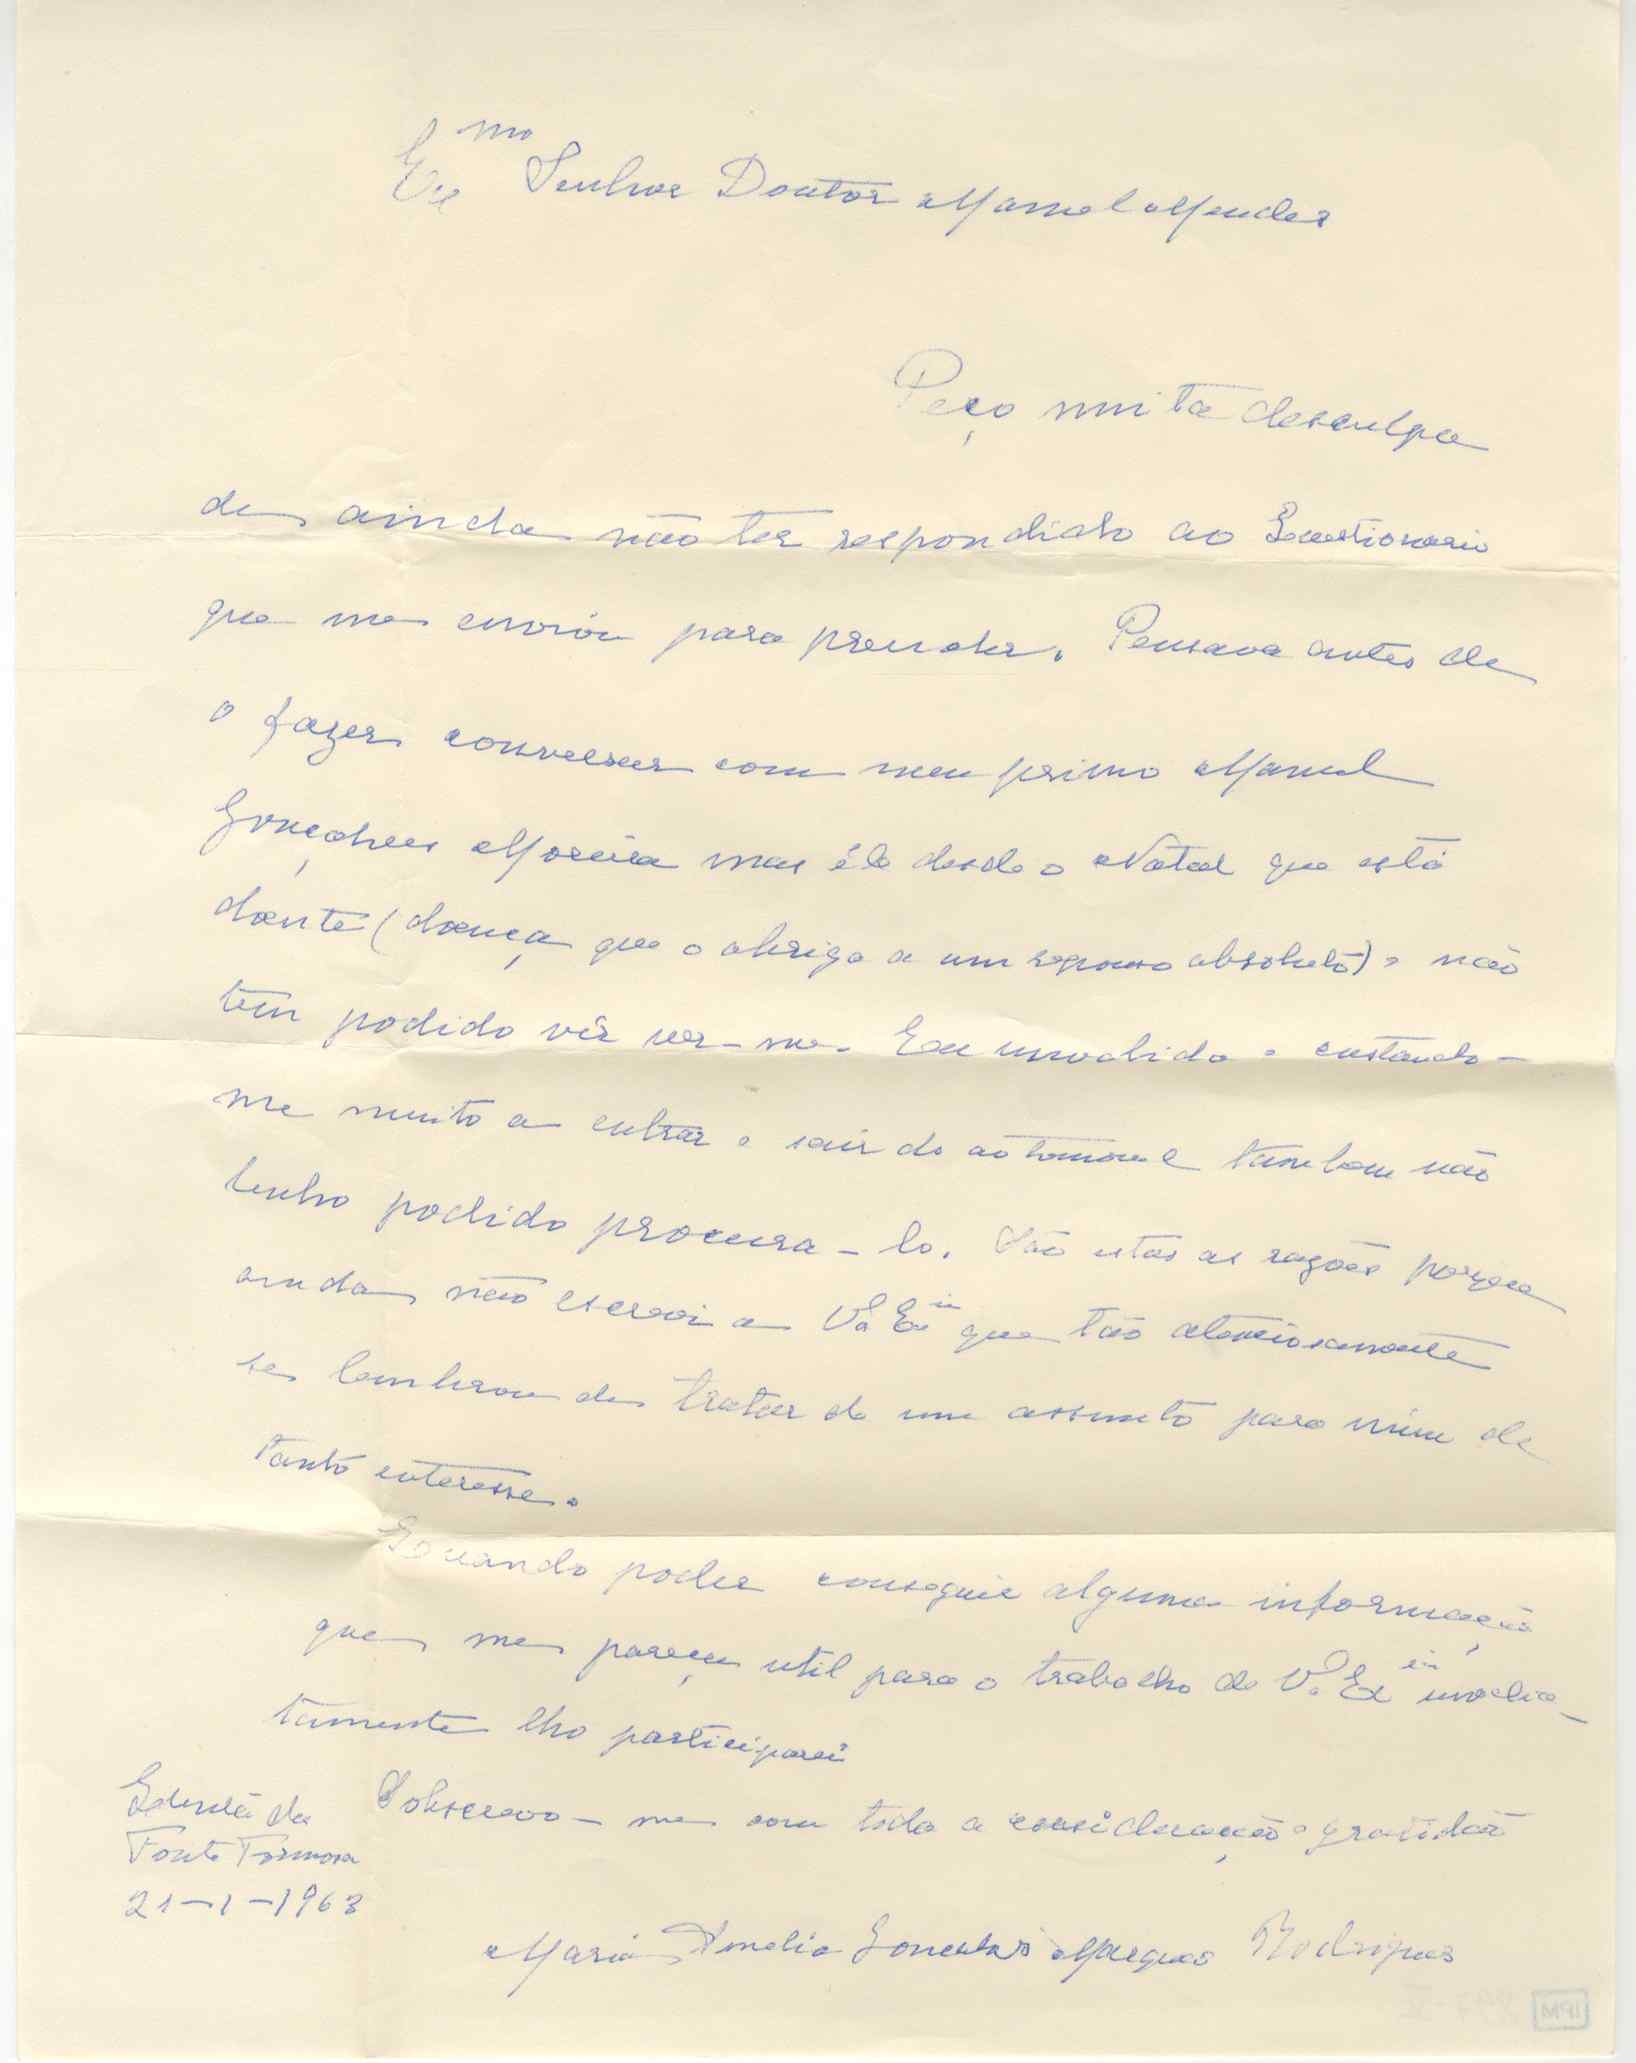 Ex mo Senhor Doutor Manuel Mendes
Peço muita desculpa
de ainda não ter respondido ao Questionario
que me enviou para prender. Pensava antes de
o fazer conversar com meu primo Manuel
Gonçalves Moreira mas êle desde o Natal que está
doente (doença que o obriga a um repouso absoluto) e não
tem podido vir ver-me. Eu invalida e custando-
me muito a entrar e sair do automovel tambem não
tenho podido procura-lo. São estas as razões porque
ainda não escrevi a V. Ex cia que tão atenciosamente
se lembrou de tratar de um assunto para mim de
tanto interesse.
Quando poder conseguir alguma informação
que me pareça util para o trabalho de V. Ex cia imedia-
tamente lho participarei
Subscrevo-me com toda a consideração e gratidão
Quinta da
Fonte Formosa
21-1-1963
Maria Amelia Gonçalves Marques Rodrigues
IPM